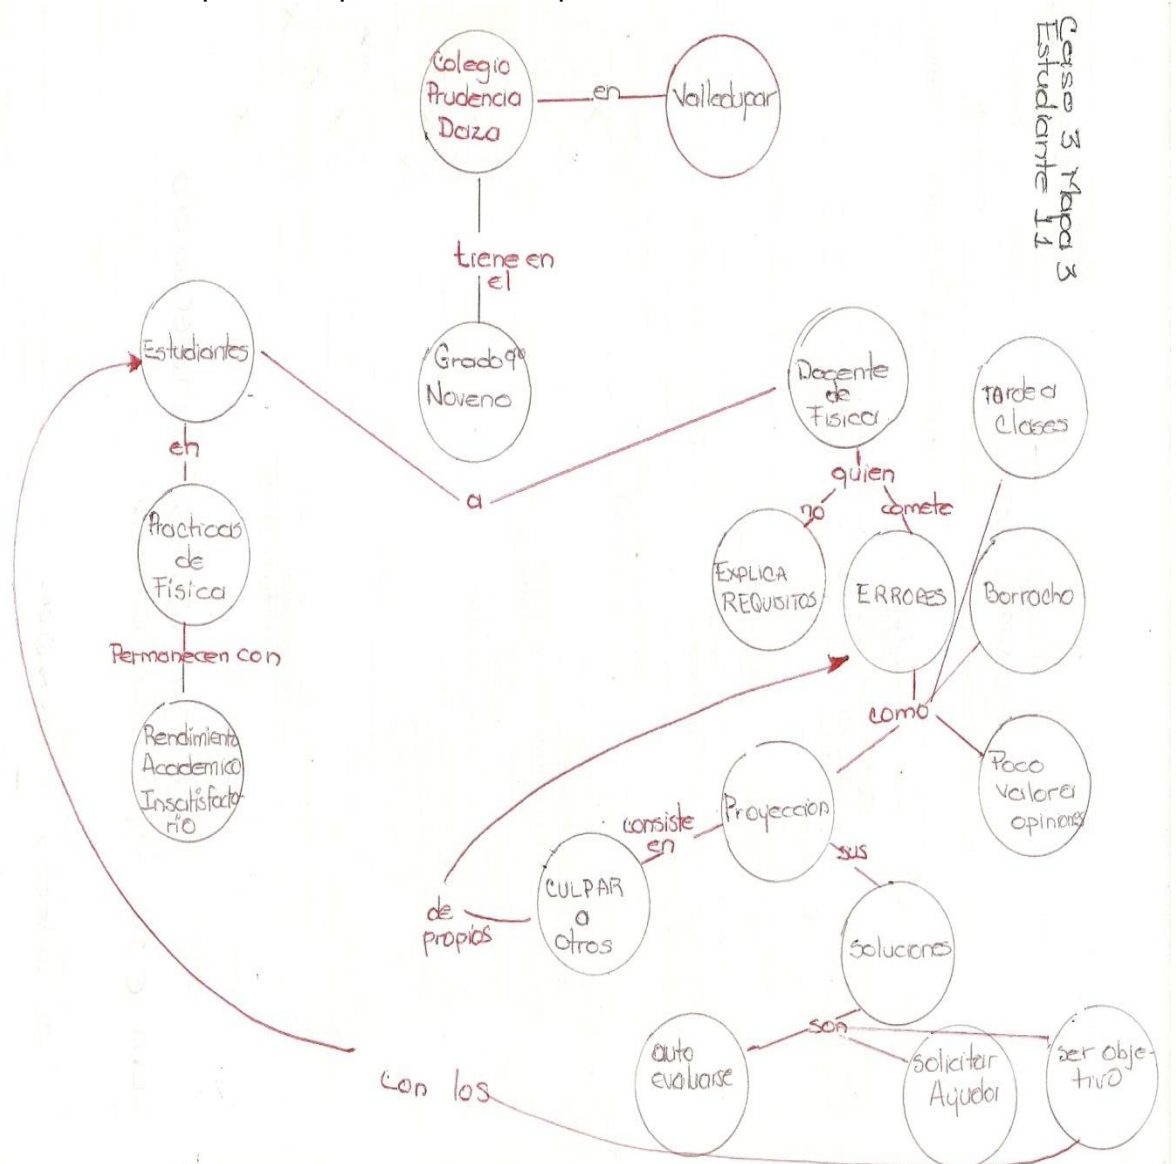 Caso 3 Mapa 3
Estudiante 11
Colegio
Prudencia
Daza
en
Valledupar
tiene en
el
Grado 9º
Noveno
Estudiantes
a
Docente
de
Física
en
Practicas
de
Física
Permanecen con
Rendimiento
Academico
Insatisfacto-
rio
quien
no
comete
EXPLICA
REQUISITOS
ERRORES
como
tarde a
Clases
Borracho
Poco
valora
opiniones
Proyeccion
consiste
en
CULPAR
a
otros
de
propios
sus
soluciones
son
auto
evaluarse
solicitar
Ayuda
ser obje-
tivo
con los